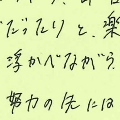 だったりと、楽
浮かべながら、
努力の先には